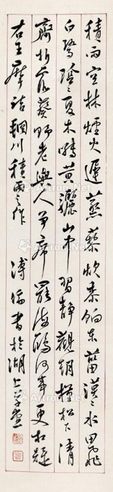 積雨空林煙火遲蒸藜炊黍餉東菑漠漠水田飛
白鷺陰陰夏木囀黃鸝山中習靜觀朝槿松下清
齋折露葵野老與人爭席罷海鷗何事更相疑
右王摩詰輞川積雨之作 溥儒書於湖上草堂